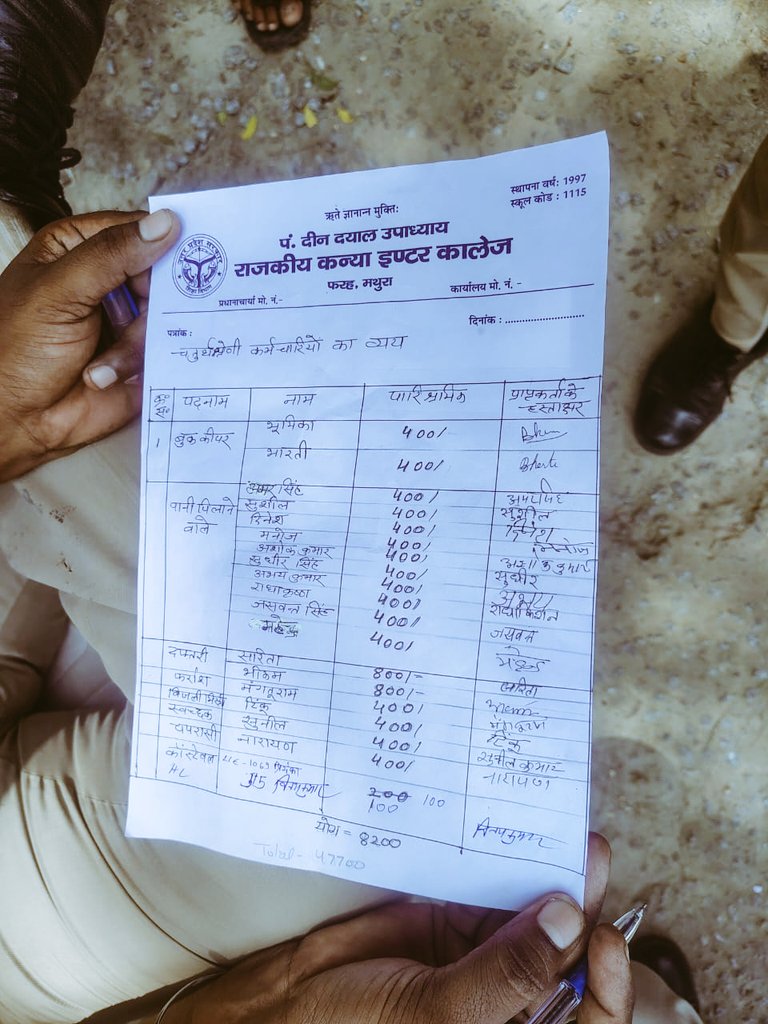 स्थापना वर्ष: 1997
स्कूल कोड : 1115
ऋते ज्ञानान्न मुक्ति:
पं. दीन दयाल उपाध्याय
राजकीय कन्या इण्टर कालेज
फरह, मथुरा
प्रधानाचार्या मो. नं.- कार्यालय मो. नं. -
पत्रांक : दिनांक : ............................
चतुर्थश्रेणी कर्मचारियों का व्यय
क्र० सं० पदनाम नाम पारिश्रमिक प्राप्तकर्ता के हस्ताक्षर
1 बुक कीपर भूमिका 400/
भारती 400/ Bharti
पानी पिलाने वाले अमर सिंह 400/ अमरसिंह
सुशील 400/ सुशील
दिनेश 400/ दिनेश
मनोज 400/ मनोज
अशोक कुमार 400/ अशोक कुमार
सुधीर सिंह 400/ सुधीर
अभय कुमार 400/ अभय
राधाकृष्ण 400/
जसवन्त सिंह 400/ जसवन्त
400/
दफ्तरी सरिता 800/- सरिता
फर्राश भीकम 800/-
मंगतूराम 400/
स्वच्छक टिंकू 400/ टिंकू
चपरासी सुनील 400/ सुनील कुमार
नारायण 400/ नारायण
कांस्टेबल
HC 200 100
100
योग = 8200
Total - 47700